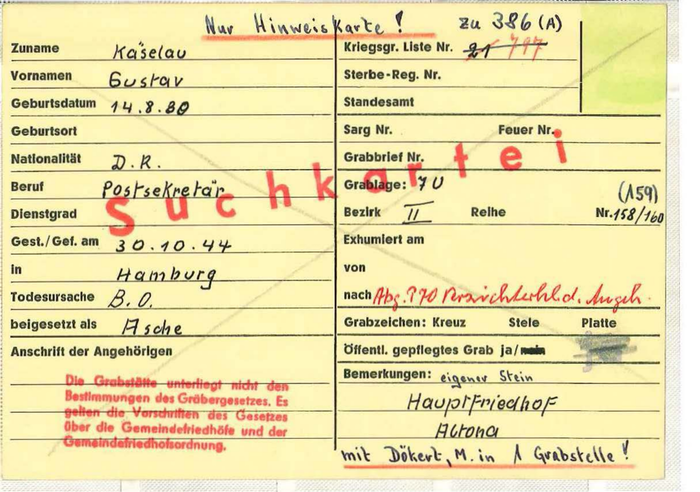 Nur Hinweiskarte! zu 386 (A)
Zuname Käselau
Vornamen Gustav
Geburtsdatum 14.8.80
Geburtsort
Nationalität D.R.
Beruf Postsekretär
Dienstgrad
Gest./Gef. am 30.10.44
in Hamburg
Todesursache B.O.
beigesetzt als Asche
Anschrift der Angehörigen
Die Grabstätte unterliegt nicht den
Bestimmungen des Gräbergesetzes. Es
gelten die Vorschriften des Gesetzes
über die Gemeindefriedhöfe und der
Gemeindefriedhofsordnung.
Suchkartei
Kriegsgr. Liste Nr. 21 797
Sterbe-Reg. Nr.
Standesamt
Sarg Nr. Feuer Nr.
Grabbrief Nr.
Grablage: 7U
(159)
Bezirk II Reihe Nr. 158/160
Exhumiert am
von
nach Abg. ? 70 d. Angeh.
Grabzeichen: Kreuz Stele Platte
Öffentl. gepflegtes Grab ja/nein
Bemerkungen: eigener Stein
Hauptfriedhof
Altona
mit Dökert, M. in 1 Grabstelle!